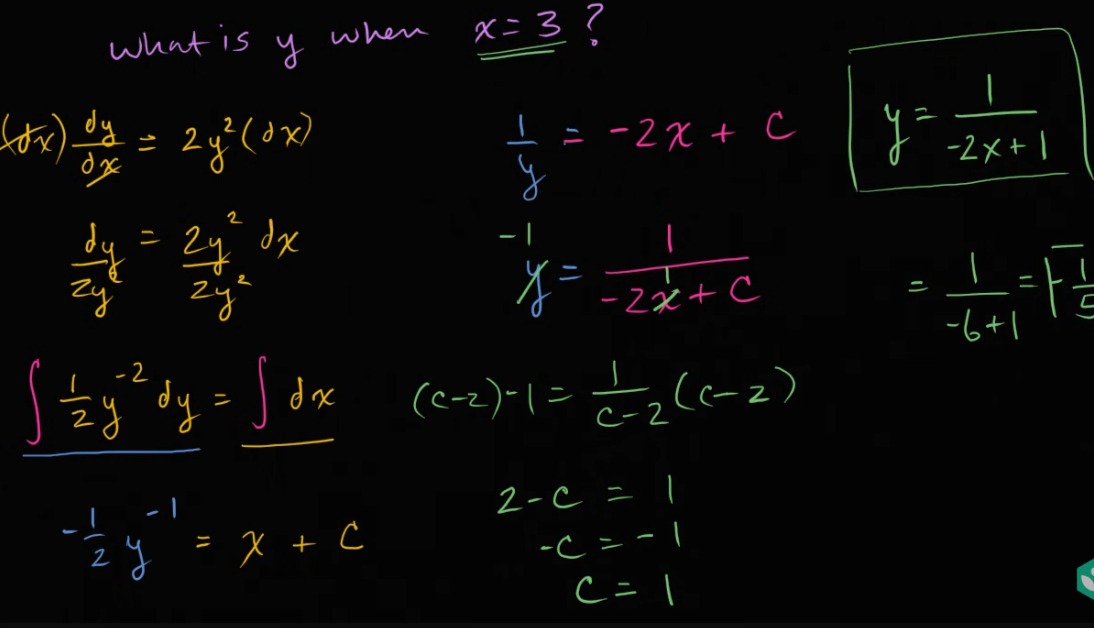 What is y when x = 3 ?
(dx) dy/dx = 2y² (dx)
dy/2y² = 2y²/2y² dx
∫ 1/2 y⁻² dy = ∫ dx
-1/2 y⁻¹ = x + C
1/y = -2x + C
-1
y = 1/(-2x + C)
1
(C-2)-1 = 1/(C-2) (C-2)
2-C = 1
-C = -1
C = 1
y = 1/(-2x+1)
= 1/(-6+1) = -1/5